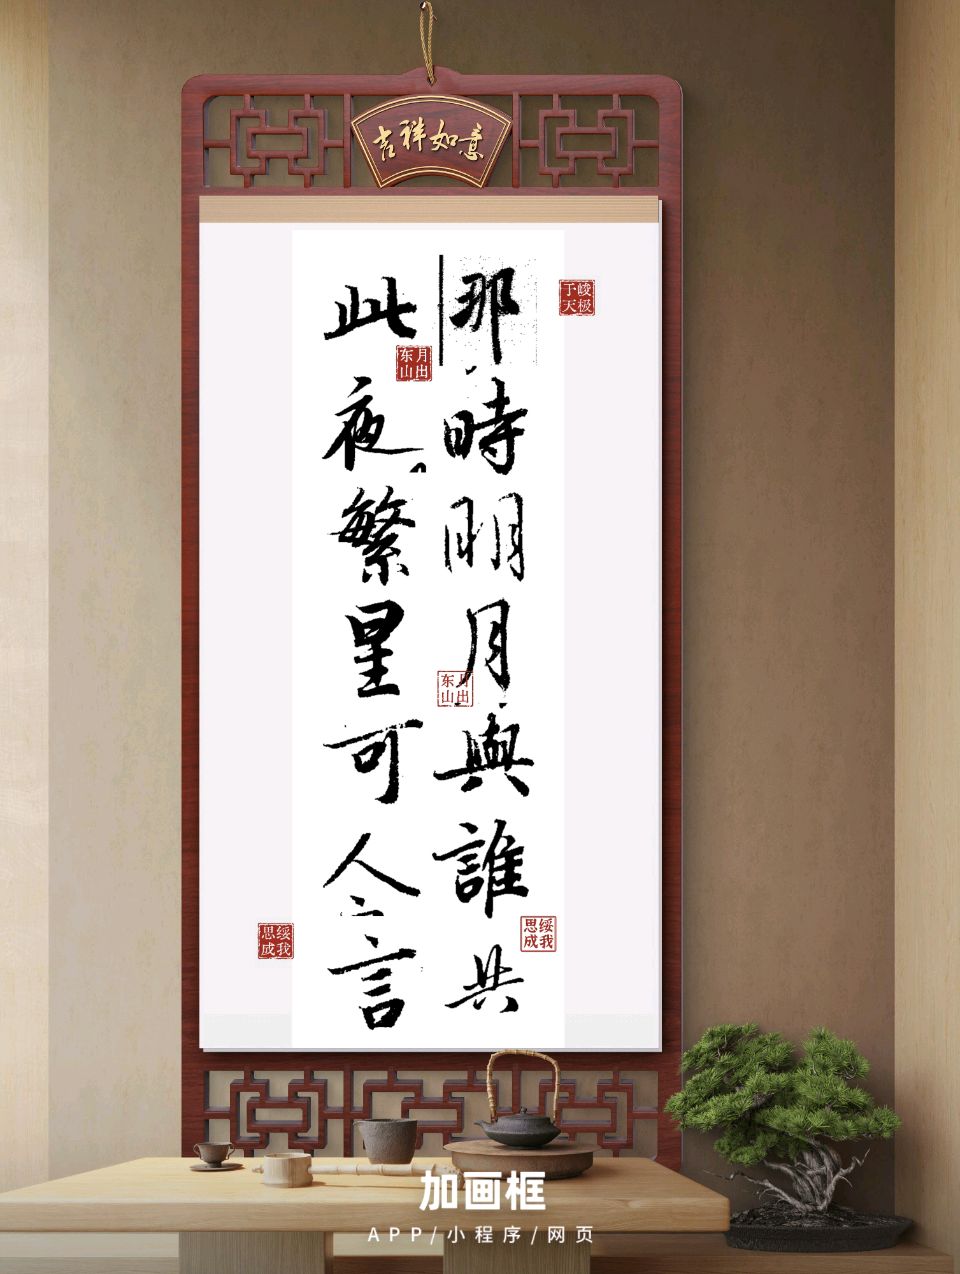 吉祥如意
那時明月與誰共
此夜繁星可人言
峻极于天
月出东山
月出东山
绥我思成
绥我思成
加画框
APP/小程序/网页